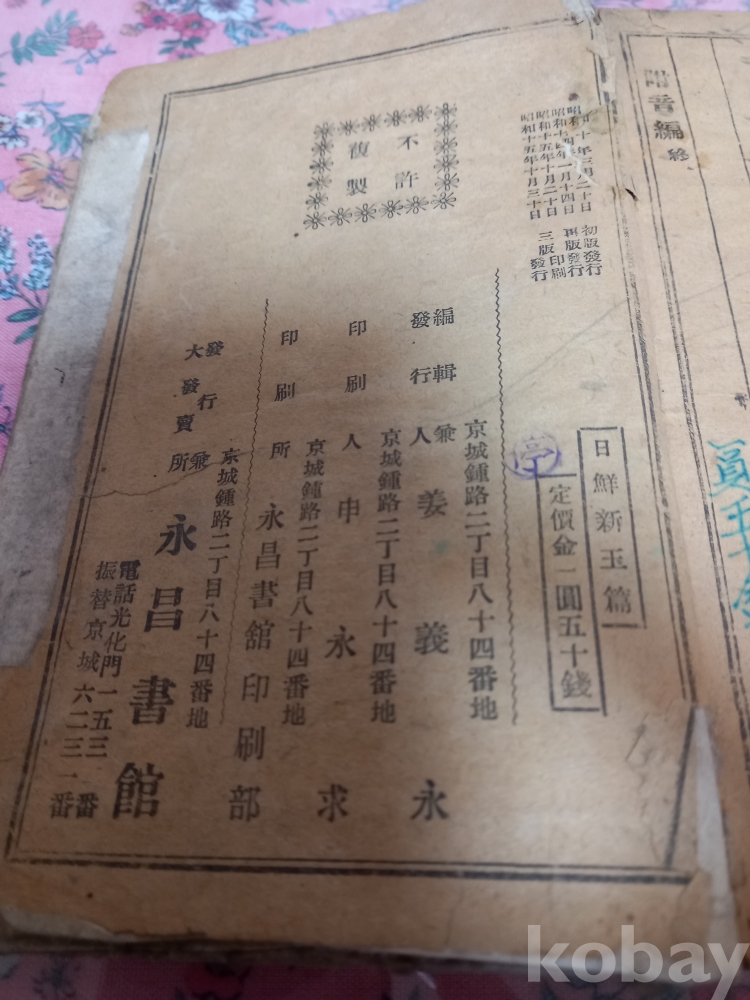 諧音編 終
昭和十年三月二十日 初版發行
昭和十四年一月十四日 再版發行
昭和十五年十月二十日 三版印刷
昭和十五年十月三十日 三版發行
不許
複製
日鮮新玉篇
定價金一圓五十錢
京城鍾路二丁目八十四番地
編輯兼
發行人 姜義永
京城鍾路二丁目八十四番地
印刷人 申永求
京城鍾路二丁目八十四番地
印刷所 永昌書舘印刷部
京城鍾路二丁目八十四番地
發行兼
大發賣所 永昌書館
電話光化門一五三番
振替京城六二三一番
kobay